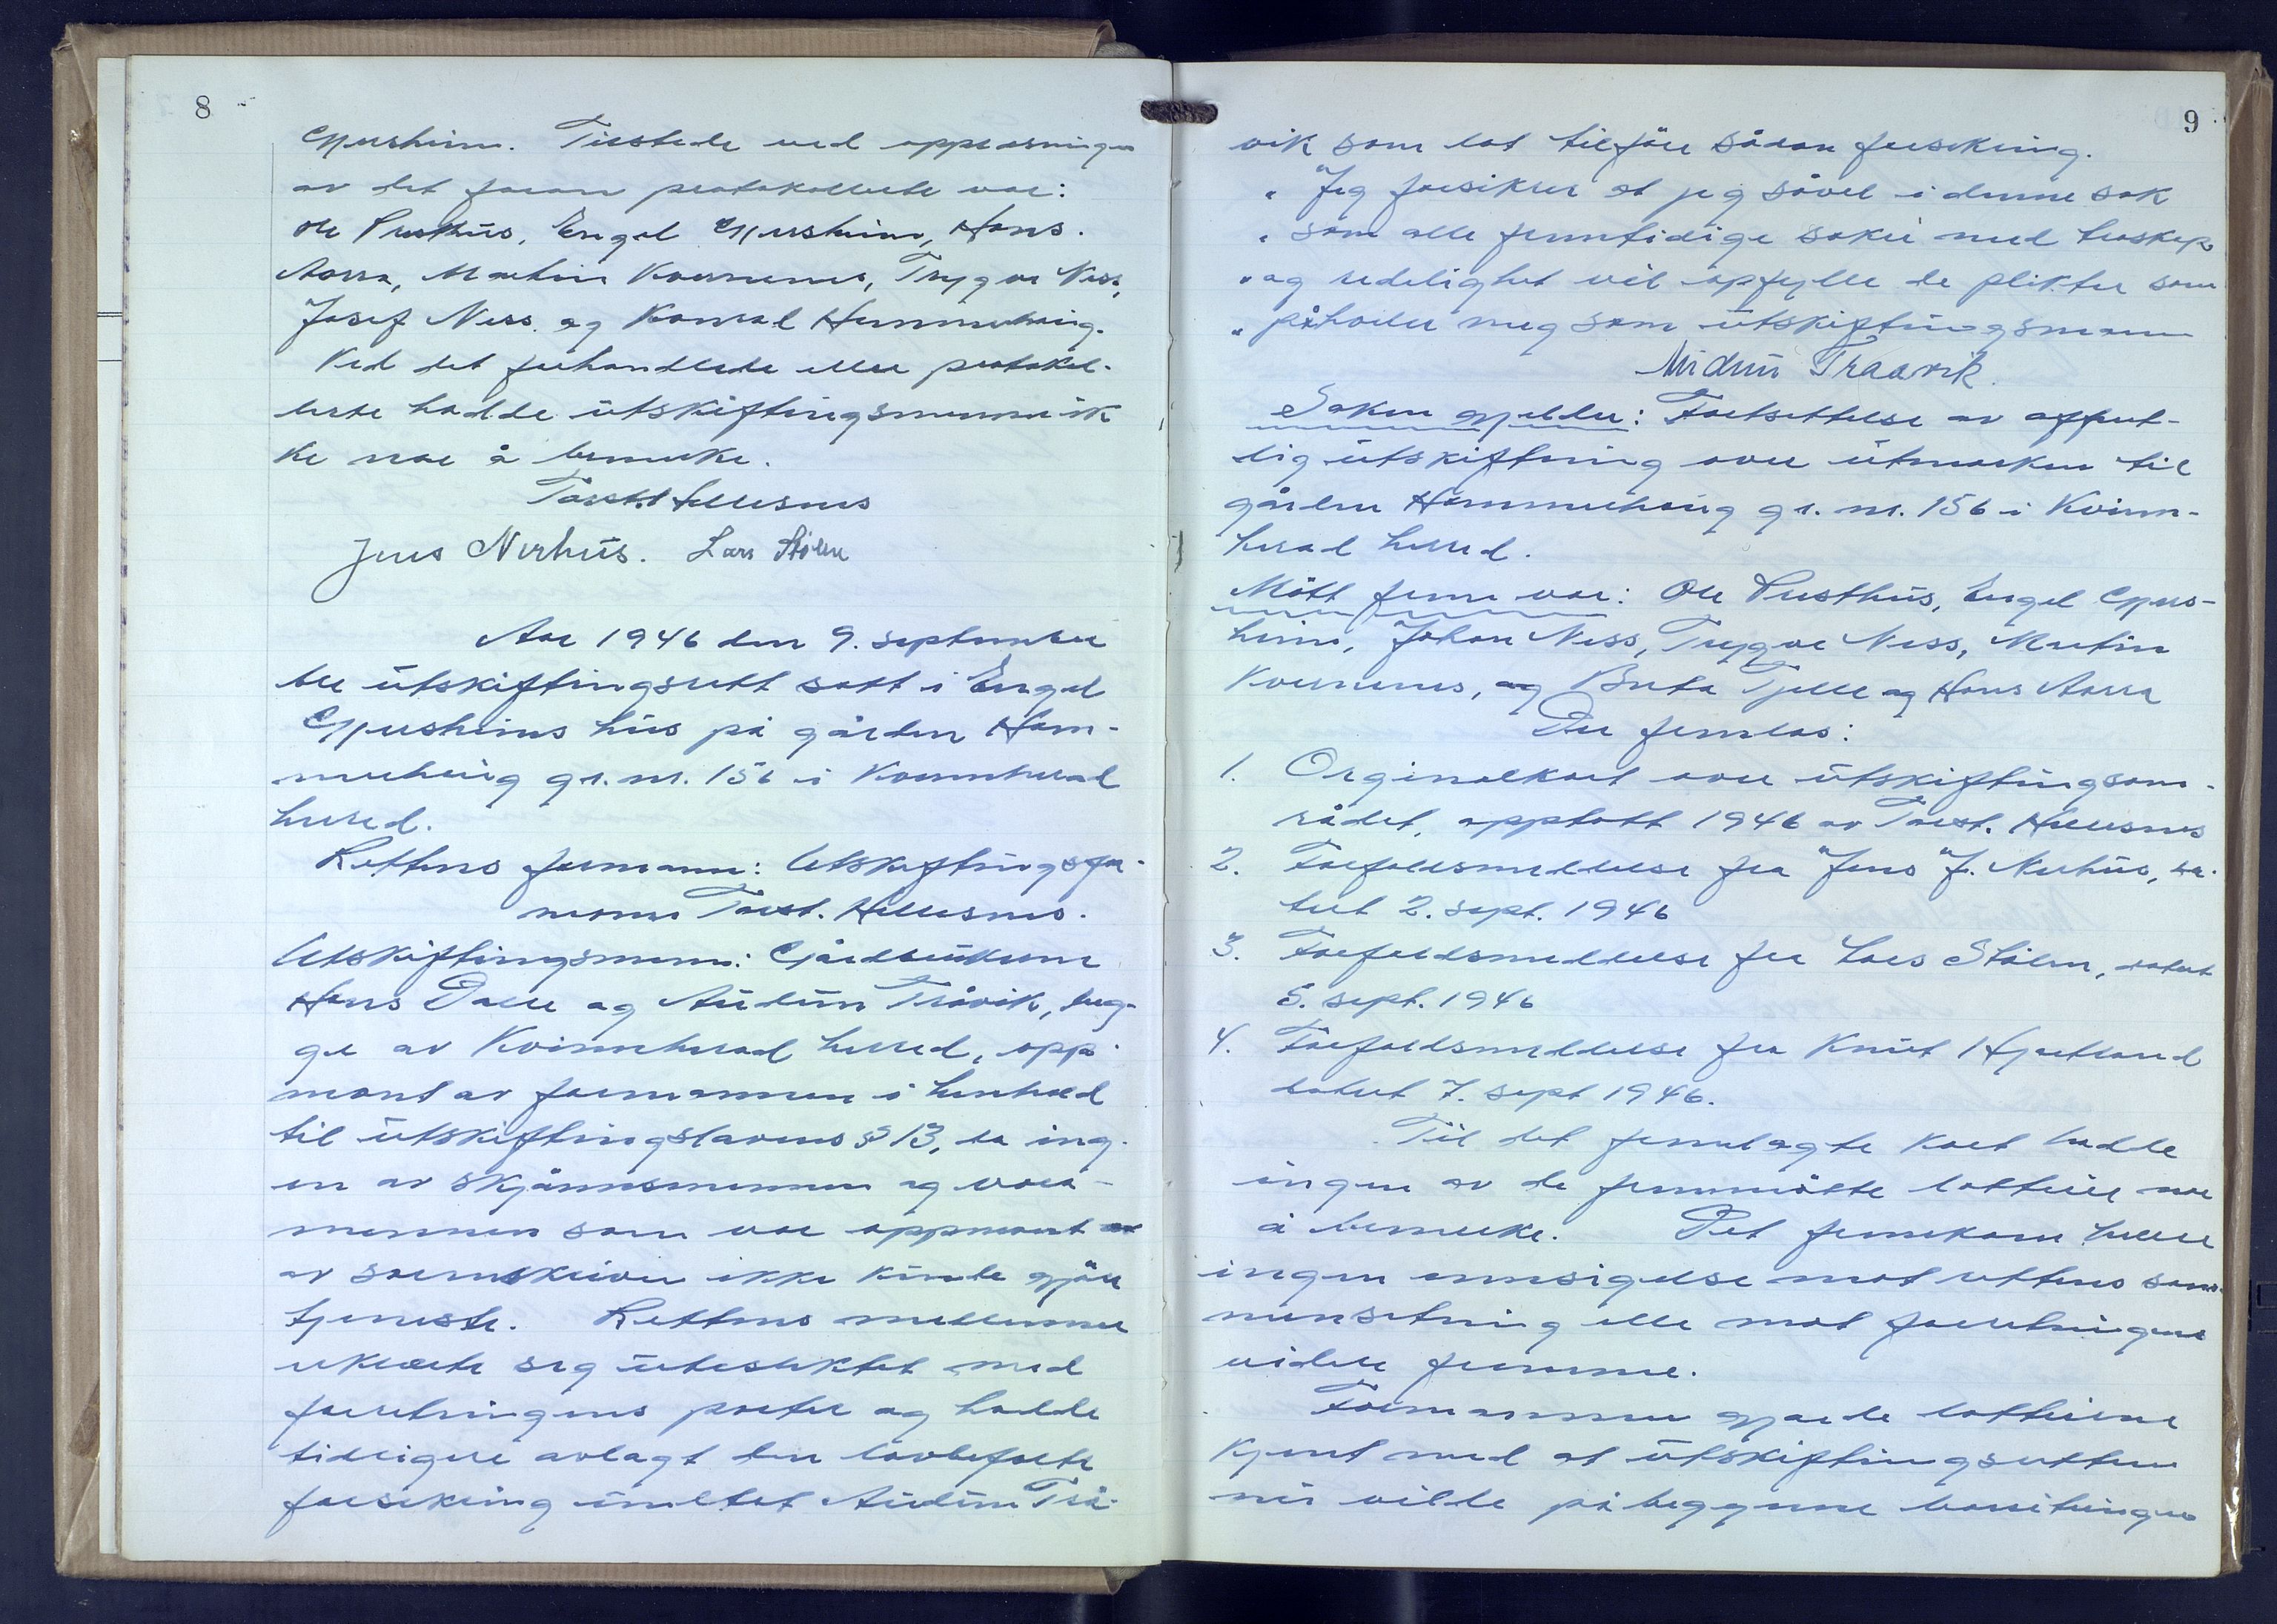 8
Gjersheim. Tilstede ved opplesningen
av det foran protokollerte var:
Ole Presthus, Engel Gjersheim, Hans
Aarra, Martin Kvernenes, Trygve Ness,
Josef Ness og Konrad Hammerhaug.
Ved det forhandlede eller protokol-
lerte hadde utskiftingsmennene ik
ke noe å bemerke.
Torst. Hellesnes
Jens Nerhus. Lars Stölen
Aar 1946 den 9. september
ble utskiftingsrett satt i Engel
Gjersheims hus på gården Ham-
merhaug gr. nr. 156 i Kvinnherad
herred.
Rettens formann: Utskiftingsfor-
mann Torst. Hellesnes.
Utskiftingsmenn: Gårdbrukerne
Hans Dale og Audun Tråvik, beg-
ge av Kvinnherad herred, opp-
nevnt av formannen i henhold
til utskiftingslovens § 13, da ing-
en av skjønnsmennene og vara-
mennene som var oppnevnt
av sorenskriver ikke kunde gjöre
tjeneste. Rettens medlemmer
erklærte seg ubeslektet med
forretningens parter og hadde
tidligere avlagt den lovbefalte
forsikring undtat Audun Trå-
9
vik som lot tilföre sådan forsikring.
"Jeg forsikrer at jeg såvel i denne sak
"som alle fremtidige saker med troskap
"og redelighet vil opfylle de plikter som
"påhviler meg som utskiftingsmann
Audun Traavik.
Saken gjelder: Fortsettelse av offent-
lig utskiftning over utmarken til
gården Hammerhaug gr. nr. 156 i Kvinn-
herad herred.
Mött frem var: Ole Presthus, Engel Gjers-
heim, Johan Ness, Trygve Ness, Martin
Kvernenes, og Berta Tjelle og Hans Aarra
Der fremlas:
1. Orginalkart over utskiftingsom-
rådet, opptatt 1946 av Torst. Hellesnes
2. Forfallsmeldelse fra Jens J. Nerhus, da-
tert 2. sept. 1946
3. Forfallsmeldelse fra Lars Stölen, datert
5. sept. 1946
4. Forfallsmeldelse fra Knut Hjetland
datert 7. sept 1946.
Til det fremlagte kart hadde
ingen av de fremmötte lotteier noe
å bemerke. Det fremkom heller
ingen innsigelse mot rettens sam-
mensetning eller mot forretningens
videre fremme.
Formannen gjorde lotteierne
kjent med at utskiftingsretten
nu vilde påbegynne boniteringen